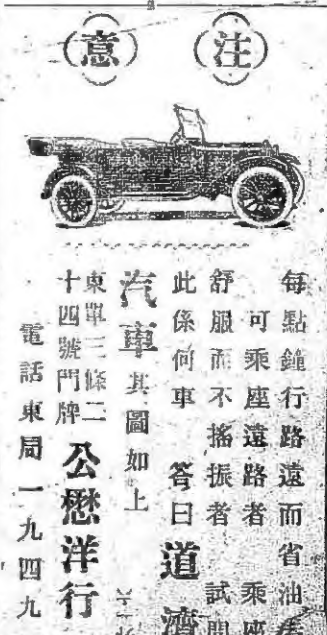 注意
每點鐘行路遠而省油
可乘座遠路者 乘座
舒服而不搖振者 試問
此係何車 答曰 道濟
汽車 其圖如上
東單三條二
十四號門牌 公懋洋行
電話東局一九四九